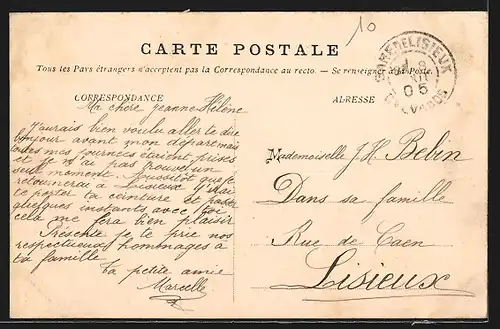 10
CARTE POSTALE
Tous les Pays étrangers n'acceptent pas la Correspondance au recto. — Se renseigner à la Poste.
GARE DE LISIEUX
05
CALVADOS
CORRESPONDANCE
Ma chère Jeanne-Hélène
J'aurais bien voulu aller te dire
bonjour avant mon départ mais
toutes mes journées étaient prises
et je n'ai pas trouvé un
seul moment. Aussitôt que je
retournerai à Lisieux j'irai
te porter ta ceinture et passer
quelques instants avec toi
cela me fera bien plaisir
Présente je te prie nos
respectueux hommages à
ta famille
Ta petite amie
Marcelle
ADRESSE
Mademoiselle J H Bebin
Dans sa famille
Rue de Caen
Lisieux